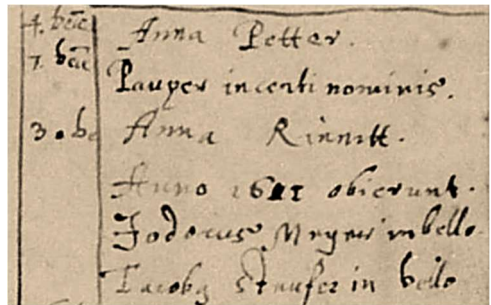 4. Anna Petter.
7. Pauper incerti nominis.
30. Anna Rinnitt.
Anno 1621 obierunt.
Jodocus Meyer in bello.
Jacobg Staufer in bello